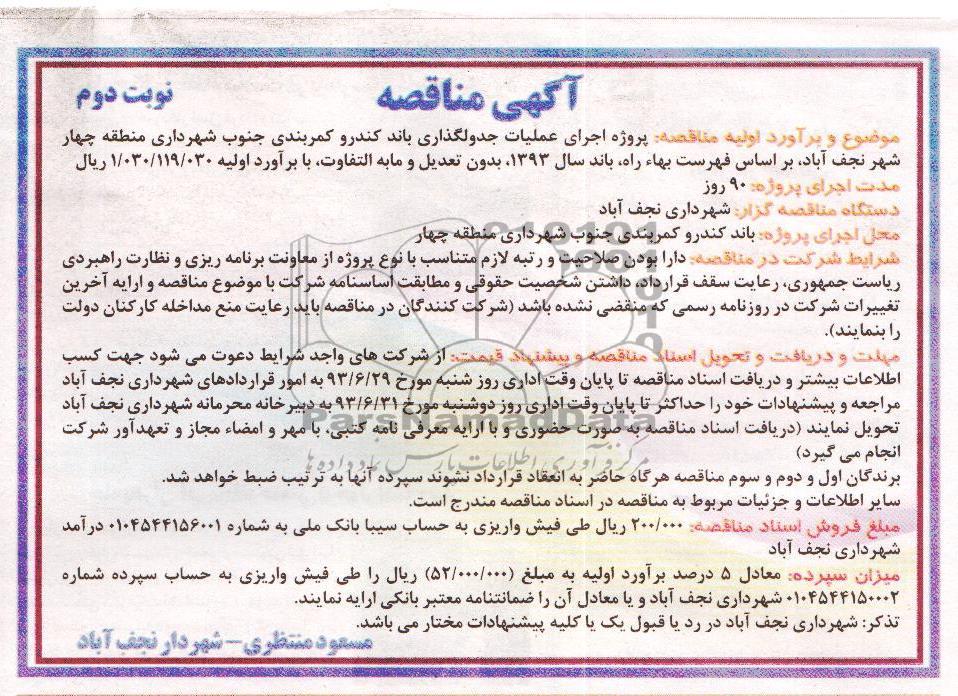 آگهی مناقصه
نوبت دوم
موضوع و برآورد اولیه مناقصه: پروژه اجرای عملیات جدولگذاری باند کندرو کمربندی جنوب شهرداری منطقه چهار
شهر نجف آباد، بر اساس فهرست بهاء راه، باند سال ۱۳۹۳، بدون تعدیل و مابه التفاوت، با برآورد اولیه ۱/۰۳۰/۱۱۹/۰۳۰ ریال
مدت اجرای پروژه: ۹۰ روز
دستگاه مناقصه گزار: شهرداری نجف آباد
محل اجرای پروژه: باند کندرو کمربندی جنوب شهرداری منطقه چهار
شرایط شرکت در مناقصه: دارا بودن صلاحیت و رتبه لازم متناسب با نوع پروژه از معاونت برنامه ریزی و نظارت راهبردی
ریاست جمهوری، رعایت سقف قرارداد، داشتن شخصیت حقوقی و مطابقت اساسنامه شرکت با موضوع مناقصه و ارایه آخرین
تغییرات شرکت در روزنامه رسمی که منقضی نشده باشد (شرکت کنندگان در مناقصه باید رعایت منع مداخله کارکنان دولت
را بنمایند).
مهلت و دریافت و تحویل اسناد مناقصه و پیشنهاد قیمت: از شرکت های واجد شرایط دعوت می شود جهت کسب
اطلاعات بیشتر و دریافت اسناد مناقصه تا پایان وقت اداری روز شنبه مورخ ۹۳/۶/۲۹ به امور قراردادهای شهرداری نجف آباد
مراجعه و پیشنهادات خود را حداکثر تا پایان وقت اداری روز دوشنبه مورخ ۹۳/۶/۳۱ به دبیرخانه محرمانه شهرداری نجف آباد
تحویل نمایند (دریافت اسناد مناقصه به صورت حضوری و با ارایه معرفی نامه کتبی، با مهر و امضاء مجاز و تعهدآور شرکت
انجام می گیرد)
برندگان اول و دوم و سوم مناقصه هرگاه حاضر به انعقاد قرارداد نشوند سپرده آنها به ترتیب ضبط خواهد شد.
سایر اطلاعات و جزئیات مربوط به مناقصه در اسناد مناقصه مندرج است.
مبلغ فروش اسناد مناقصه: ۲۰۰/۰۰۰ ریال طی فیش واریزی به حساب سیبا بانک ملی به شماره ۰۱۰۴۵۴۴۱۵۶۰۰۱ درآمد
شهرداری نجف آباد
میزان سپرده: معادل ۵ درصد برآورد اولیه به مبلغ (۵۲/۰۰۰/۰۰۰) ریال را طی فیش واریزی به حساب سپرده شماره
۰۱۰۴۵۴۴۱۵۰۰۰۲ شهرداری نجف آباد و یا معادل آن را ضمانتنامه معتبر بانکی ارایه نمایند.
تذکر: شهرداری نجف آباد در رد یا قبول یک یا کلیه پیشنهادات مختار می باشد.
مسعود منتظری – شهردار نجف آباد
ParsNamadData
مرکز فرآوری اطلاعات پارس نماد داده ها